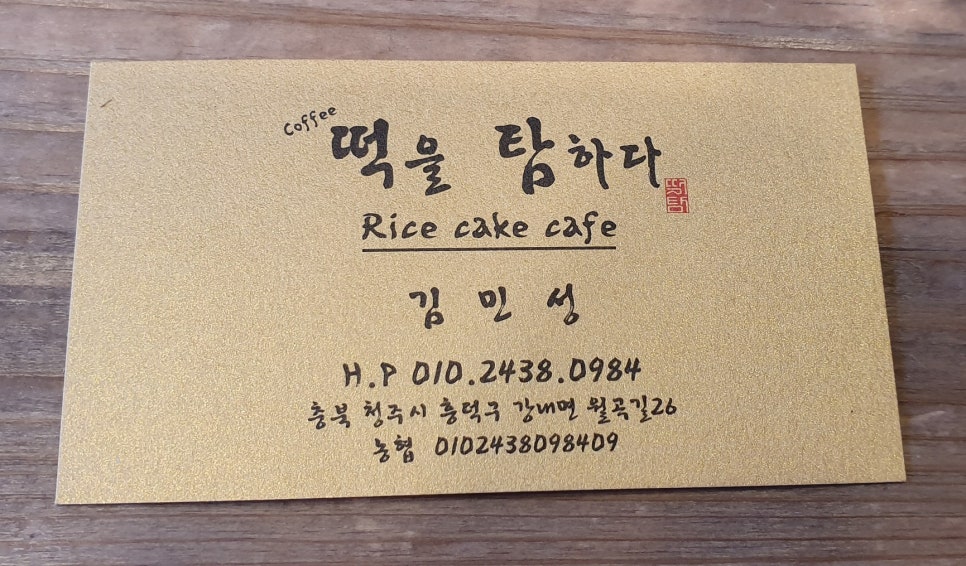 Coffee
떡을 탐하다
떡탐
Rice cake cafe
김 민 성
H.P 010.2438.0984
충북 청주시 흥덕구 강내면 월곡길26
농협 0102438098409